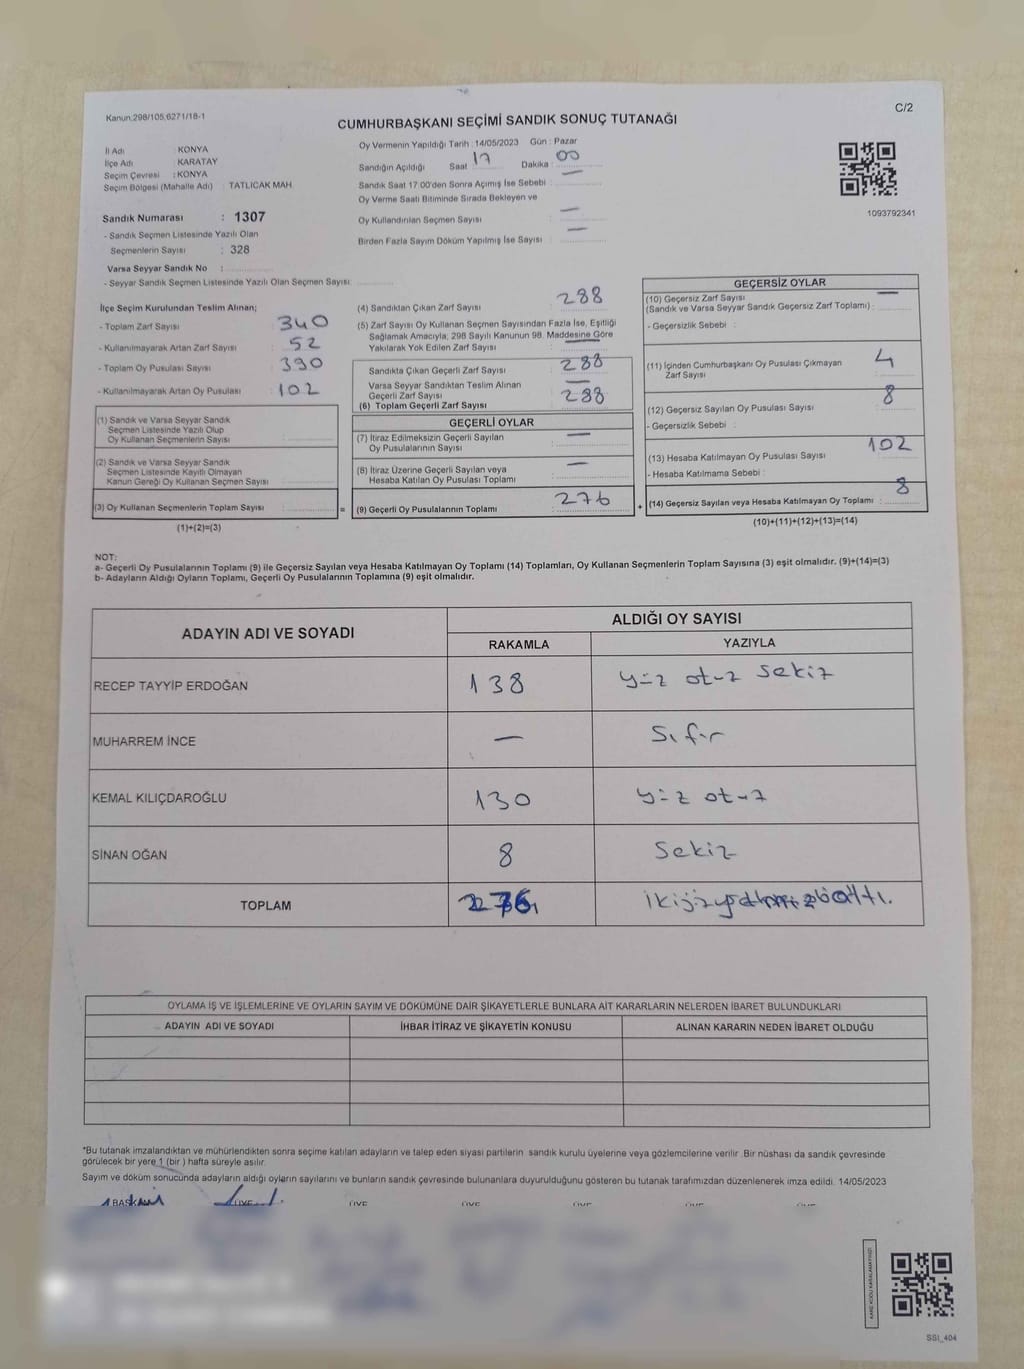 Kanun:298/105,6271/18-1
C/2
CUMHURBAŞKANI SEÇİMİ SANDIK SONUÇ TUTANAĞI
İl Adı : KONYA
İlçe Adı : KARATAY
Seçim Çevresi : KONYA
Seçim Bölgesi (Mahalle Adı) : TATLICAK MAH
Sandık Numarası : 1307
- Sandık Seçmen Listesinde Yazılı Olan
Seçmenlerin Sayısı : 328
Varsa Seyyar Sandık No :
- Seyyar Sandık Seçmen Listesinde Yazılı Olan Seçmen Sayısı:
Oy Vermenin Yapıldığı Tarih : 14/05/2023 Gün : Pazar
Sandığın Açıldığı Saat 17 Dakika : 00
Sandık Saat 17:00'den Sonra Açımış İse Sebebi : —
Oy Verme Saati Bitiminde Sırada Bekleyen ve
Oy Kullandırılan Seçmen Sayısı : —
Birden Fazla Sayım Döküm Yapılmış İse Sayısı : —
1093792341
İlçe Seçim Kurulundan Teslim Alınan;
- Toplam Zarf Sayısı 340
- Kullanılmayarak Artan Zarf Sayısı 52
- Toplam Oy Pusulası Sayısı 390
- Kullanılmayarak Artan Oy Pusulası 102
(1) Sandık ve Varsa Seyyar Sandık
Seçmen Listesinde Yazılı Olup
Oy Kullanan Seçmenlerin Sayısı :
(2) Sandık ve Varsa Seyyar Sandık
Seçmen Listesinde Kayıtlı Olmayan
Kanun Gereği Oy Kullanan Seçmen Sayısı :
(3) Oy Kullanan Seçmenlerin Toplam Sayısı :
(1)+(2)=(3)
=
(4) Sandıktan Çıkan Zarf Sayısı : 288
(5) Zarf Sayısı Oy Kullanan Seçmen Sayısından Fazla İse, Eşitliği
Sağlamak Amacıyla, 298 Sayılı Kanunun 98. Maddesine Göre
Yakılarak Yok Edilen Zarf Sayısı : —
Sandıkta Çıkan Geçerli Zarf Sayısı : 288
Varsa Seyyar Sandıktan Teslim Alınan
Geçerli Zarf Sayısı : —
(6) Toplam Geçerli Zarf Sayısı : 288
GEÇERLİ OYLAR
(7) İtiraz Edilmeksizin Geçerli Sayılan
Oy Pusulasının Sayısı : —
(8) İtiraz Üzerine Geçerli Sayılan veya
Hesaba Katılan Oy Pusulası Toplamı : —
(9) Geçerli Oy Pusulalarının Toplamı : 276
+
GEÇERSİZ OYLAR
(10) Geçersiz Zarf Sayısı —
(Sandık ve Varsa Seyyar Sandık Geçersiz Zarf Toplamı) :
- Geçersizlik Sebebi :
(11) İçinden Cumhurbaşkanı Oy Pusulası Çıkmayan
Zarf Sayısı : 4
(12) Geçersiz Sayılan Oy Pusulası Sayısı : 8
- Geçersizlik Sebebi :
(13) Hesaba Katılmayan Oy Pusulası Sayısı : 102
- Hesaba Katılmama Sebebi :
(14) Geçersiz Sayılan veya Hesaba Katılmayan Oy Toplamı : 8
(10)+(11)+(12)+(13)=(14)
NOT:
a- Geçerli Oy Pusulalarının Toplamı (9) ile Geçersiz Sayılan veya Hesaba Katılmayan Oy Toplamı (14) Toplamları, Oy Kullanan Seçmenlerin Toplam Sayısına (3) eşit olmalıdır. (9)+(14)=(3)
b- Adayların Aldığı Oyların Toplamı, Geçerli Oy Pusulalarının Toplamına (9) eşit olmalıdır.
ADAYIN ADI VE SOYADI
ALDIĞI OY SAYISI
RAKAMLA YAZIYLA
RECEP TAYYİP ERDOĞAN 138 yüz otuz sekiz
MUHARREM İNCE — Sıfır
KEMAL KILIÇDAROĞLU 130 yüz otuz
SİNAN OĞAN 8 Sekiz
TOPLAM 276
OYLAMA İŞ VE İŞLEMLERİNE VE OYLARIN SAYIM VE DÖKÜMÜNE DAİR ŞİKAYETLERLE BUNLARA AİT KARARLARIN NELERDEN İBARET BULUNDUKLARI
ADAYIN ADI VE SOYADI İHBAR İTİRAZ VE ŞİKAYETİN KONUSU ALINAN KARARIN NEDEN İBARET OLDUĞU
*Bu tutanak imzalandıktan ve mühürlendikten sonra seçime katılan adayların ve talep eden siyasi partilerin sandık kurulu üyelerine veya gözlemcilerine verilir. Bir nüshası da sandık çevresinde
görülecek bir yere 1 (bir) hafta süreyle asılır.
Sayım ve döküm sonucunda adayların aldığı oyların sayılarını ve bunların sandık çevresinde bulunanlara duyurulduğunu gösteren bu tutanak tarafımızdan düzenlenerek imza edildi. 14/05/2023
BAŞKAN ÜYE ÜYE ÜYE ÜYE ÜYE ÜYE
SSI_404